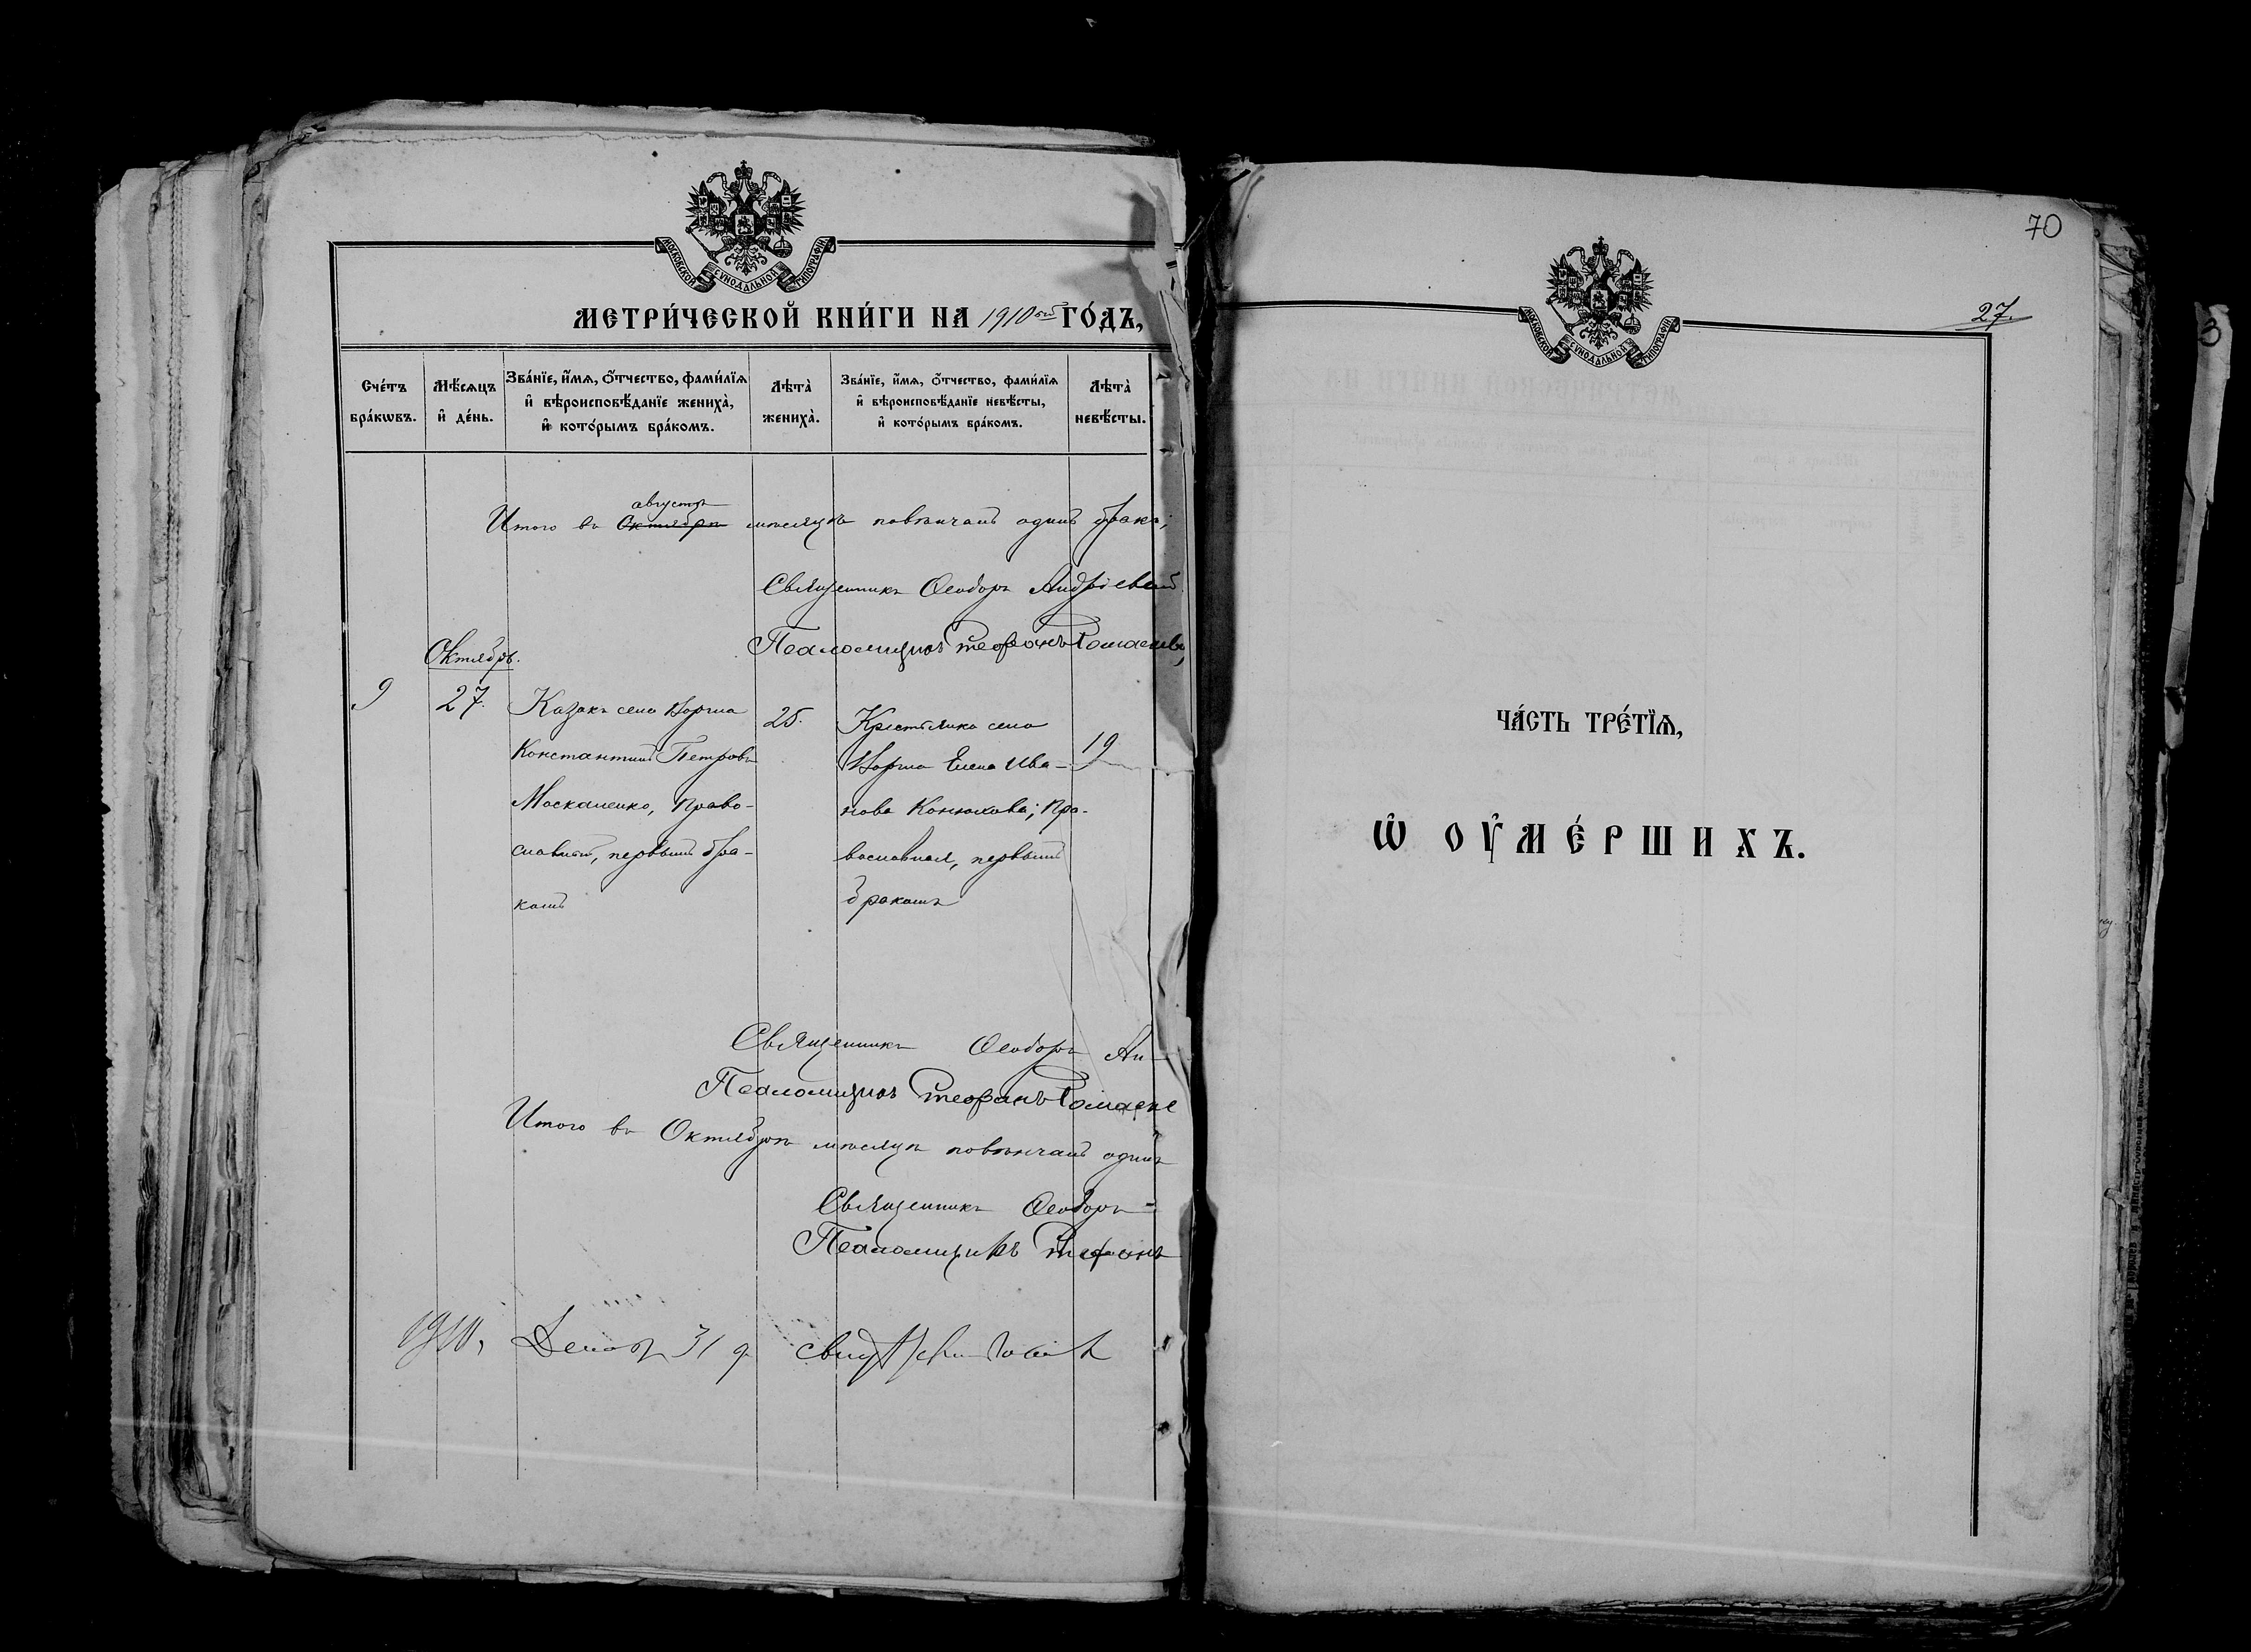 МОСКОВСКОЙ СѴНОДАЛЬНОЙ ТИПОГРАФІИ
МЕТРИ́ЧЕСКОЙ КНИ́ГИ НА 1910ый ГО́ДЪ,
Сче́тъ бра́кѡвъ.
Мѣ́сѧцъ и҆ де́нь.
Зва́нїе, и҆́мѧ, ѻ҆́тчество, фами́лїѧ
и҆ вѣроисповѣ́данїе жениха̀,
и҆ кото́рымъ бра́комъ.
Лѣта̀ жениха̀.
Зва́нїе, и҆́мѧ, ѻ҆́тчество, фами́лїѧ
и҆ вѣроисповѣ́данїе невѣ́сты,
и҆ кото́рымъ бра́комъ.
Лѣта̀ невѣ́сты.
августѣ
Итого въ Октябрѣ мѣсяцѣ повѣнчанъ одинъ бракъ;
Священникъ Ѳеодоръ Андріевскій
Псаломщикъ
Октябрь.
9
27.
Казакъ села
Константинъ Петровъ
Москаленко, право-
славный, первымъ бра-
комъ
25.
Крестьянка села
Елена Ива-
нова Конюхова; пра-
вославная, первымъ
бракомъ
19
Священникъ Ѳеодоръ Ан-
Псаломщикъ
Итого въ Октябрѣ мѣсяцѣ повѣнчанъ одинъ
Священникъ Ѳеодоръ
Псаломщикъ
1910, Декаб 31 д
70
МОСКОВСКОЙ СѴНОДАЛЬНОЙ ТИПОГРАФІИ
27.
ЧА́СТЬ ТРЕ́ТЇѦ,
Ѡ҆ ОУ҆МЕ́РШИХЪ.
3